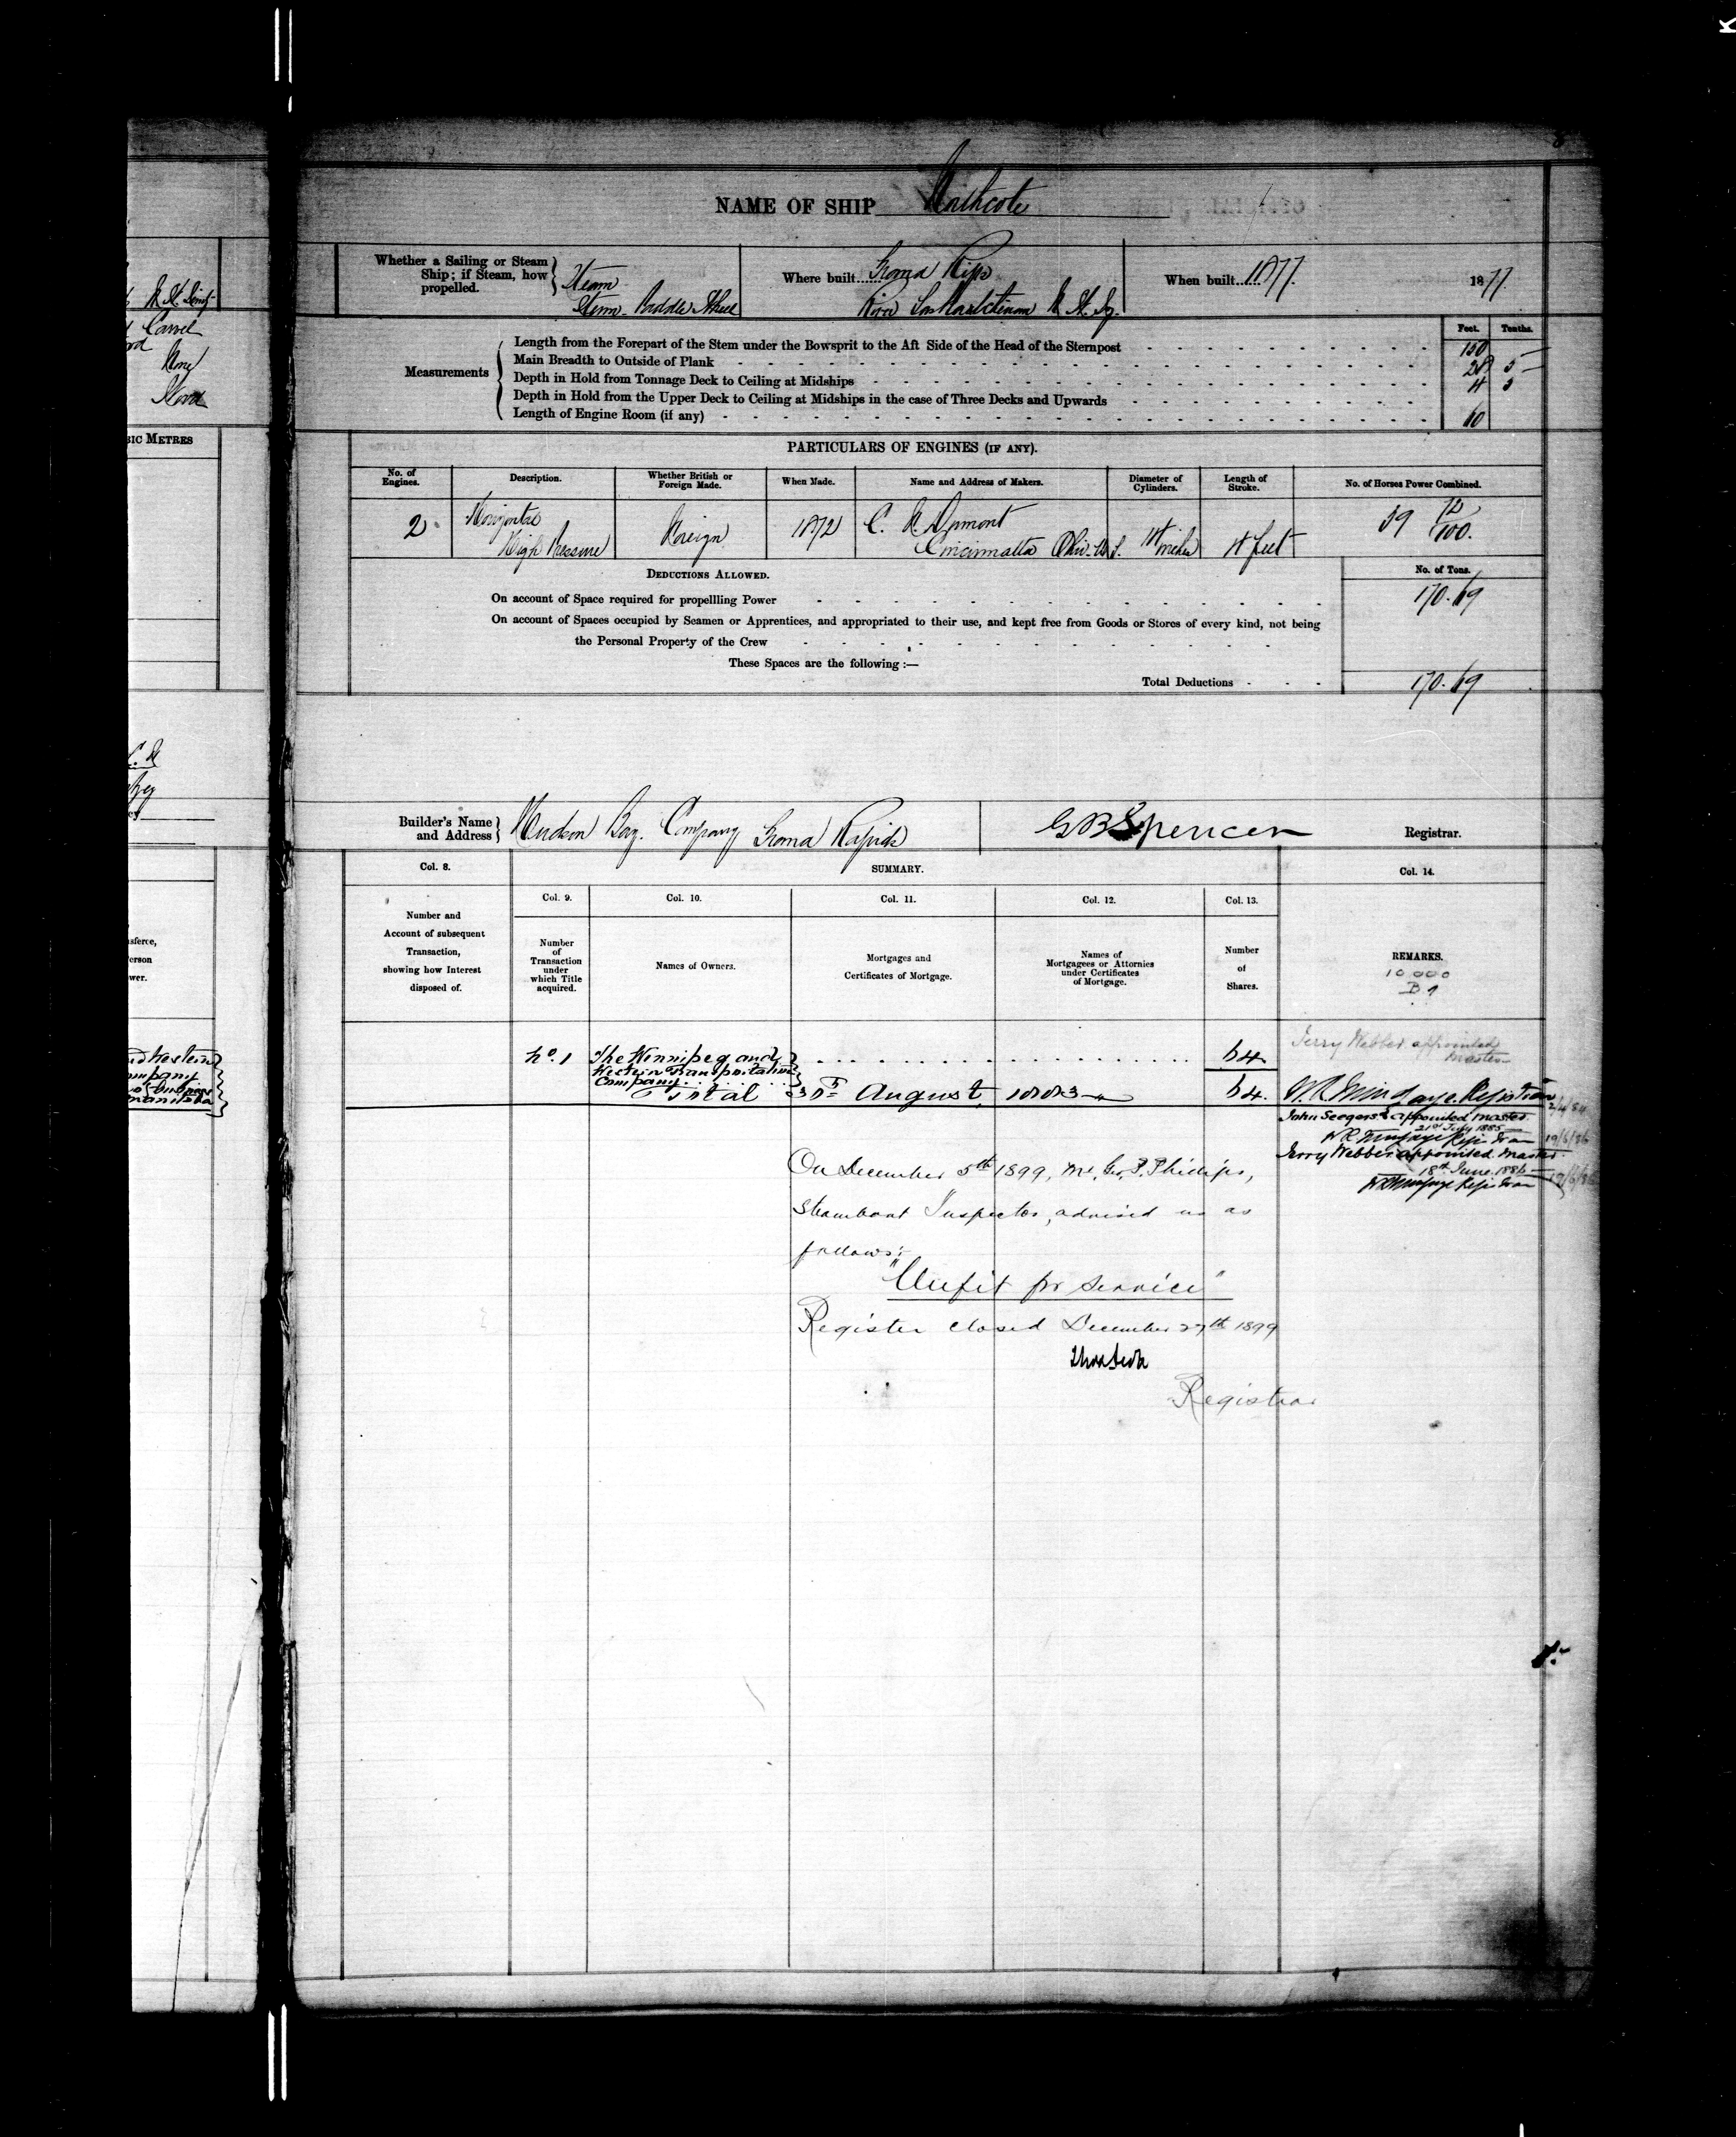 NAME OF SHIP Northcote
Whether a Sailing or Steam Ship; if Steam, how propelled. } Steam Stern Paddle Wheel
Where built...... Grand Rips River Saskatchewan N. W. Ty.
When built...... 1877. 1877.
Feet. Tenths.
Measurements
Length from the Forepart of the Stem under the Bowsprit to the Aft Side of the Head of the Sternpost 150 —
Main Breadth to Outside of Plank 28 5 —
Depth in Hold from Tonnage Deck to Ceiling at Midships 4 5
Depth in Hold from the Upper Deck to Ceiling at Midships in the case of Three Decks and Upwards
Length of Engine Room (if any)
PARTICULARS OF ENGINES (IF ANY).
No. of Engines. Description. Whether British or Foreign Made. When Made. Name and Address of Makers. Diameter of Cylinders. Length of Stroke. No. of Horses Power Combined.
2 Horizontal High Pressure Foreign 1872 C. Dumont Cincinnatta Ohio. U.S. 14 inches 4 feet
DEDUCTIONS ALLOWED. No. of Tons.
On account of Space required for propellling Power 170.69
On account of Spaces occupied by Seamen or Apprentices, and appropriated to their use, and kept free from Goods or Stores of every kind, not being
the Personal Property of the Crew
These Spaces are the following :—
Total Deductions 170.69
Builder's Name and Address } Hudson Bay. Company Grand Rapids
G B Spencer Registrar.
Col. 8. SUMMARY. Col. 14.
Col. 9. Col. 10. Col. 11. Col. 12. Col. 13.
Number and Account of subsequent Transaction, showing how Interest disposed of.
Number of Transaction under which Title acquired.
Names of Owners.
Mortgages and Certificates of Mortgage.
Names of Mortgagees or Attornies under Certificates of Mortgage.
Number of Shares.
REMARKS.
10000
No. 1 The Winnipeg and 64
Western Transportation
Company
Total August 1883 64.
Jerry Webber appointed
Master
Registrar
John Seegers appointed Master
21st July 1885
Registrar 19/6/86
Jerry Webber appointed Master
18th June 1886
Registrar
On December 5th 1899, Mr. Geo. P. Phillips,
Steamboat Inspector, advised us as
follows:-
"Unfit for Service"
Register closed December 27th 1899
Registrar